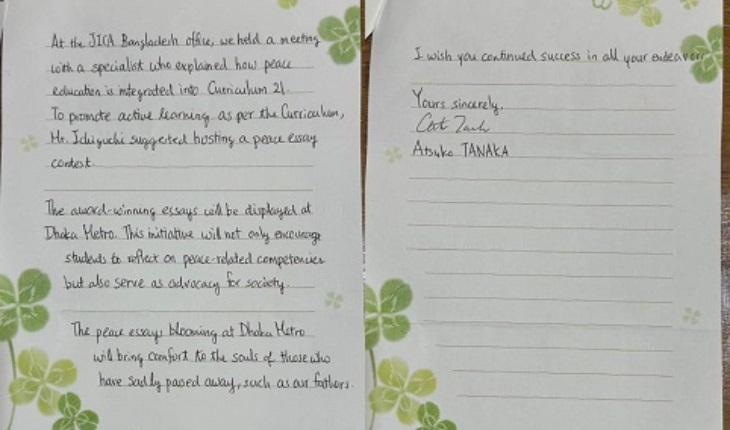 At the JICA Bangladesh office, we held a meeting
with a specialist who explained how peace
education is integrated into Curriculum 21.
To promote active learning as per the Curriculum,
Mr. Ichiguchi suggested hosting a peace essay
contest.
The award-winning essays will be displayed at
Dhaka Metro. This initiative will not only encourage
students to reflect on peace-related competencies
but also serve as advocacy for society.
The peace essays blooming at Dhaka Metro
will bring comfort to the souls of those who
have sadly passed away, such as our fathers.
I wish you continued success in all your endeavors.
Yours sincerely,
Atsuko TANAKA